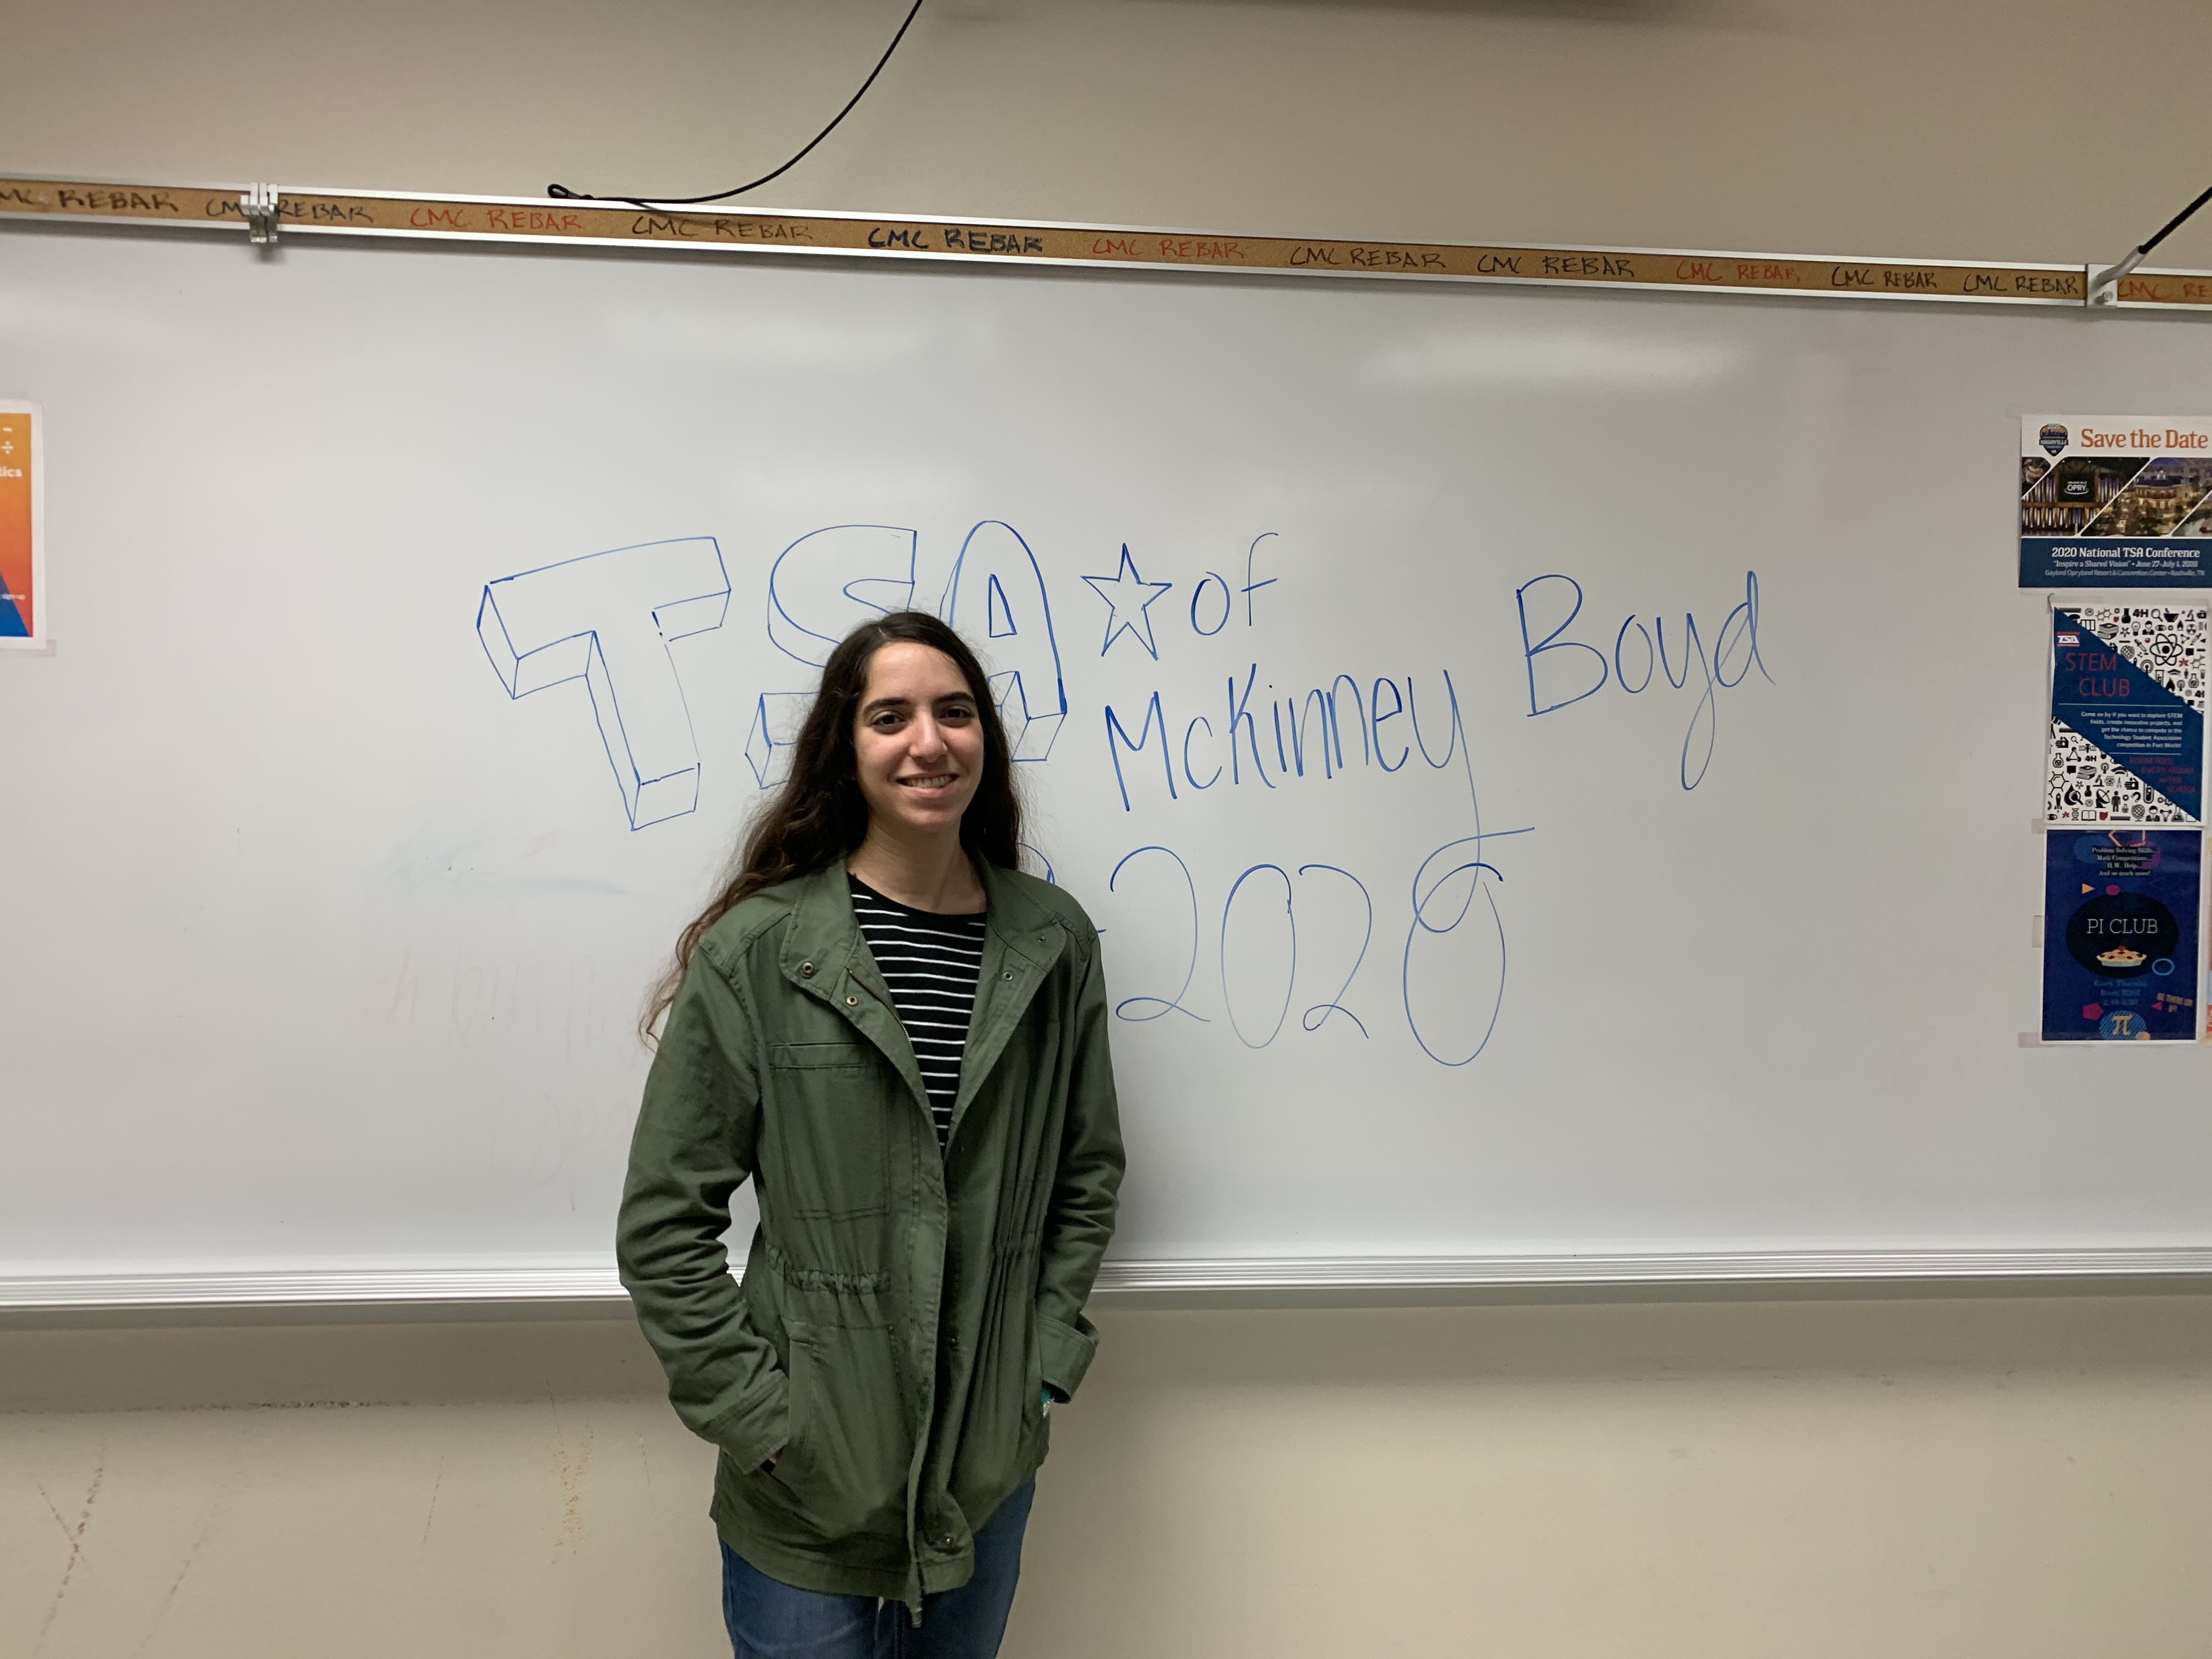 CMC REBAR CMC REBAR CMC REBAR CMC REBAR CMC REBAR CMC REBAR CMC REBAR CMC REBAR CMC REBAR CMC REBAR CMC
TSA of
McKinney Boyd
-2020
tics
Save the Date
OPRY
2020 National TSA Conference
"Inspire a Shared Vision" • June 27-July 1, 2020
Gaylord Opryland Resort & Convention Center-Nashville, TN
4H
TSA
STEM
CLUB
Come on by if you want to explore STEM
fields, create innovative projects, and
get the chance to compete in the
Technology Student Association
competition in Fort Worth!
4H
Problem Solving Skills...
Math Competitions...
H.W. Help...
And so much more!
PI CLUB
Every Thursday
BE THERE OR
π